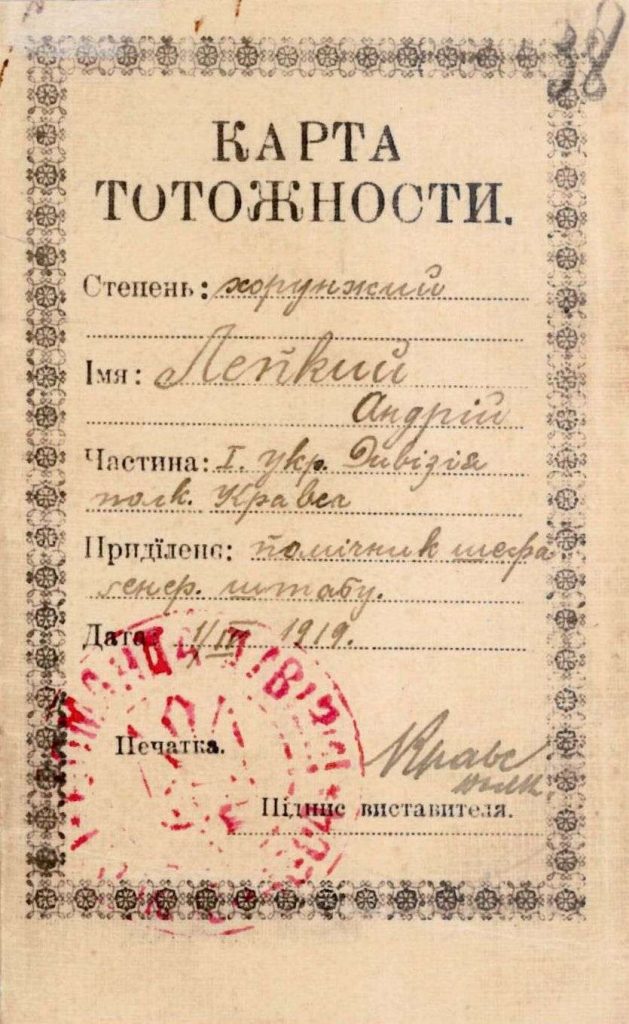 38
КАРТА
ТОТОЖНОСТИ.
Степень: хорунжий
Імя: Лепкий
Андрій
Частина: I. укр. Дивізія
полк. Кравса
Приділенє: помічник шефа
генер. штабу.
Дата: 1/III 1919.
Печатка.
Кравс
полк
Підпис виставителя.